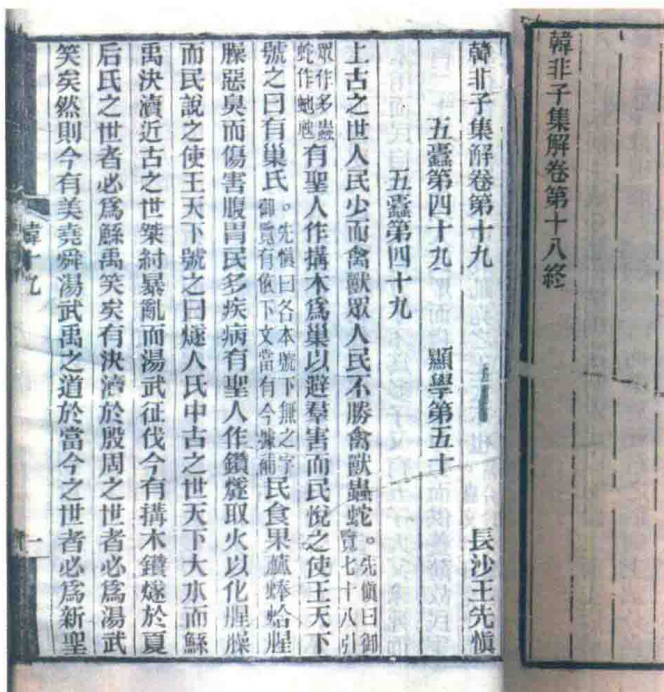 韓非子集解卷第十八終
韓非子集解卷第十九 長沙王先愼
五蠹第四十九 顯學第五十
五蠹第四十九
上古之世人民少而禽獸眾人民不勝禽獸蟲蛇。先愼曰御覽七十八引
眾作多蟲蛇作虵虺有聖人作搆木爲巢以避羣害而民悅之使王天下
號之曰有巢氏。先愼曰各本號下無之字御覽有依下文當有今據補民食果蓏蜯蛤腥
臊惡臭而傷害腹胃民多疾病有聖人作鑽燧取火以化腥臊
而民說之使王天下號之曰燧人氏中古之世天下大水而鯀
禹決瀆近古之世桀紂暴亂而湯武征伐今有搆木鑽燧於夏
后氏之世者必爲鯀禹笑矣有決瀆於殷周之世者必爲湯武
笑矣然則今有美堯舜湯武禹之道於當今之世者必爲新聖
韓十九 一